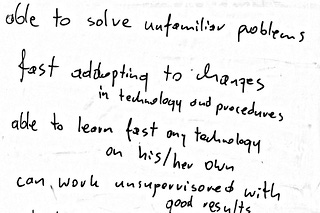 able to solve unfamiliar problems
fast addopting to changes
in technology and procedures
able to learn fast any technology
on his/her own
can work unsupervisored with
good results